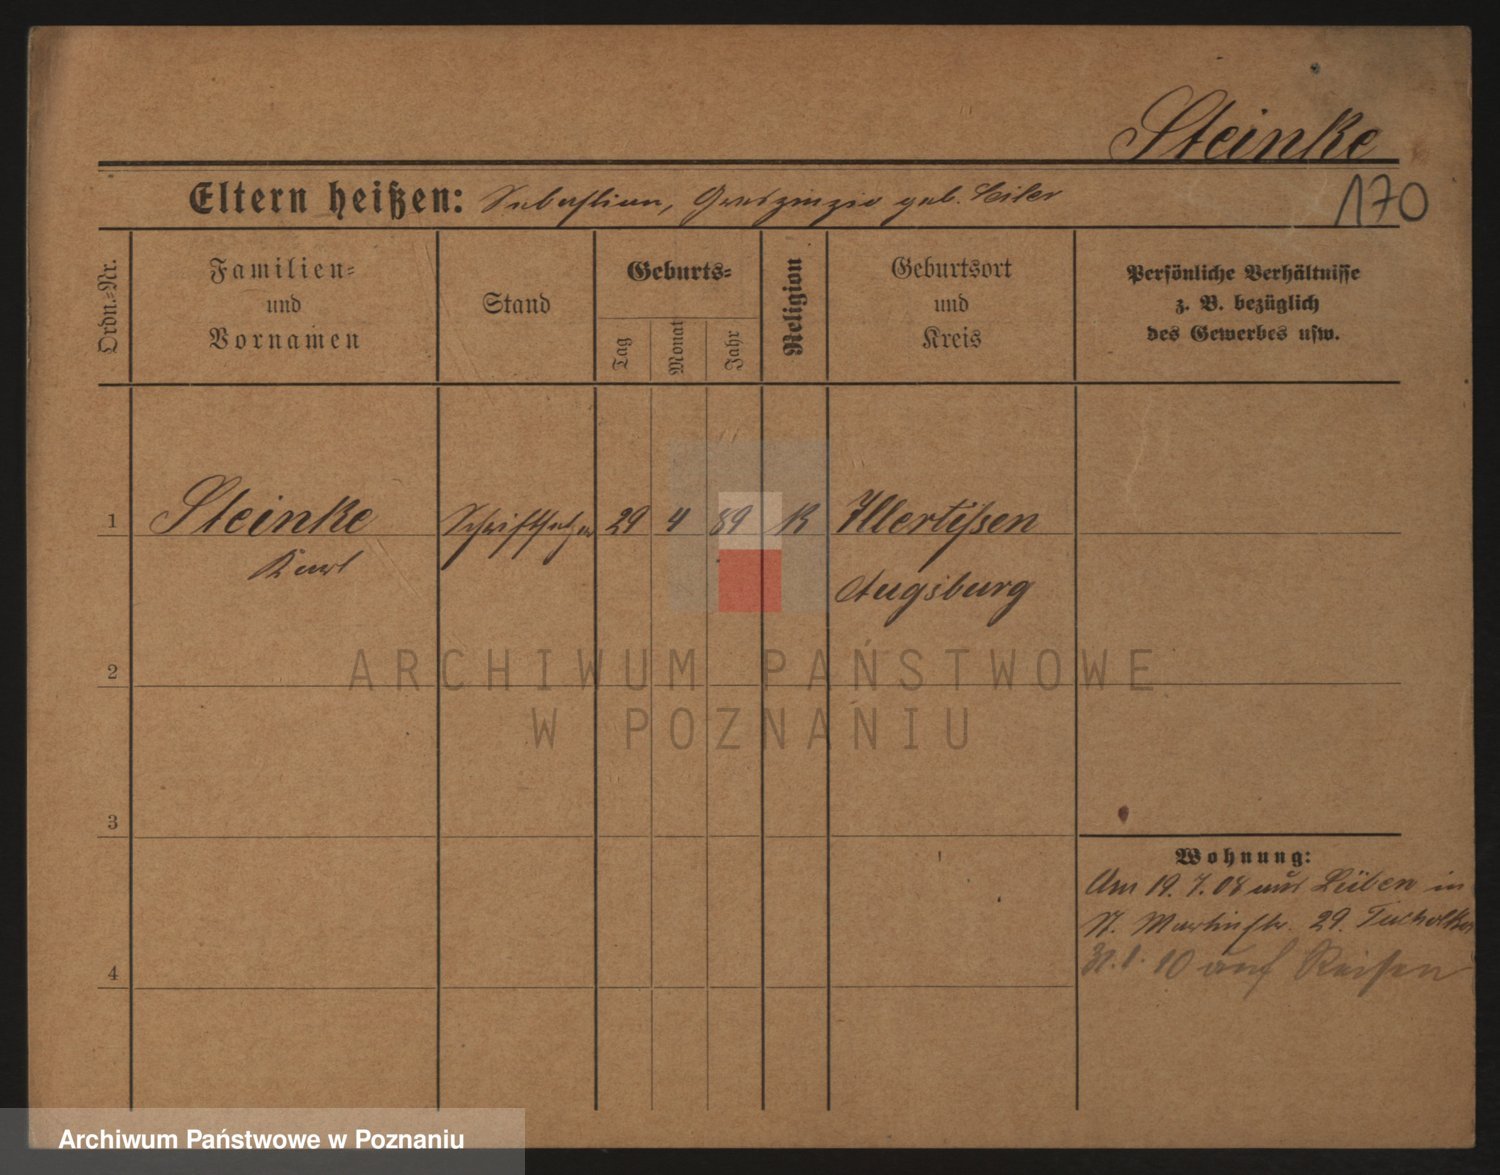 Steinke
170
Eltern heißen: Sebastian, geb.
Ordn.=Nr.
Familien=
und
Vornamen
Stand
Geburts=
Tag
Monat
Jahr
Religion
Geburtsort
und
Kreis
Persönliche Verhältnisse
z. B. bezüglich
des Gewerbes usw.
1 Steinke Schriftsetzer 29 4 89 K Illertißen
Karl Augsburg
ARCHIWUM PAŃSTWOWE
2
W POZNANIU
3
Wohnung:
Am 19. 7. 08 aus Lüben in
St. Martinstr. 29.
4
10 auf Reisen
Archiwum Państwowe w Poznaniu